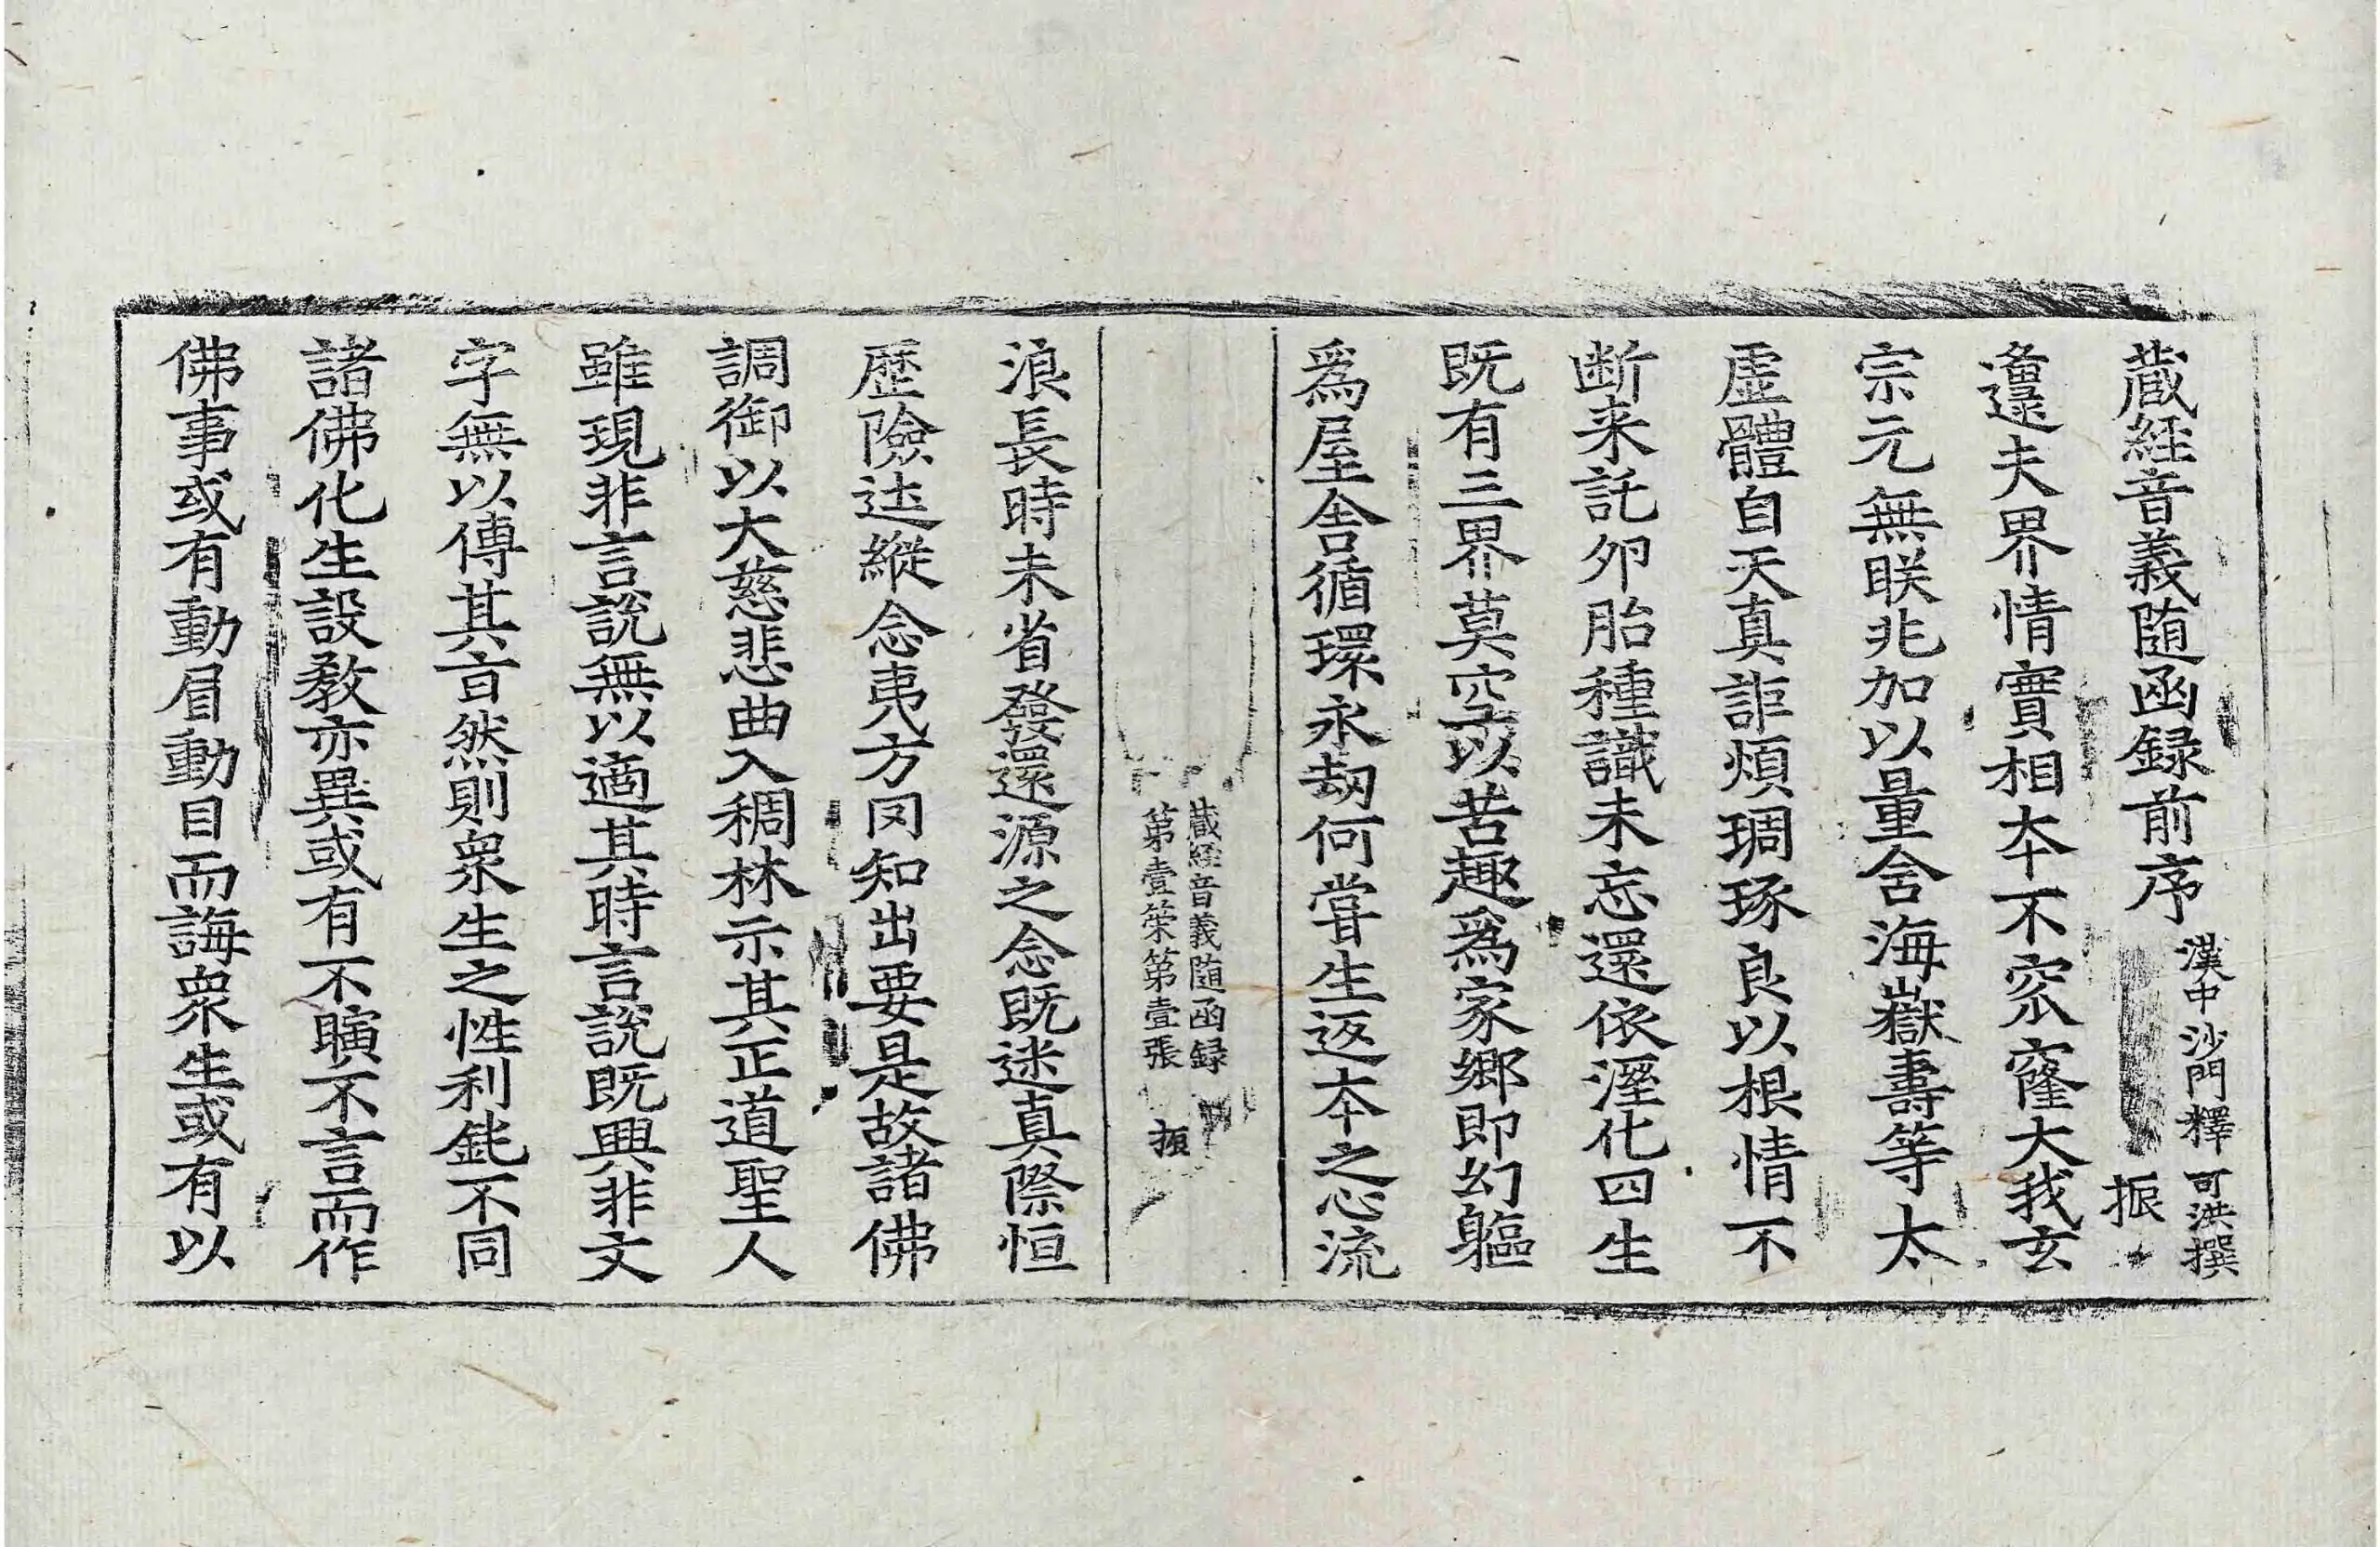 藏経音義随函録前序 漢中沙門釋 可洪撰
振
邍夫界情實相夲不窊窿大我玄
宗元無眹兆加以量含海嶽壽等太
虛體自天真詎煩琱琢良以根情不
断来託夘胎種識未忘還依溼化四生
既有三界莫空以苦趣爲家鄉即幻軀
爲屋舍循環永劫何嘗生返夲之心流
藏経音義随函録
第壹荣第壹張 振
浪長時未省發還源之念既迷真際恒
歷險逵縱念夷方罔知出要是故諸佛
調御以大慈悲曲入稠林示其正道聖人
雖現非言說無以適其時言說既興非文
字無以傳其旨然則衆生之性利鈍不同
諸佛化生設教亦異或有不瞚不言而作
佛事或有動眉動目而誨衆生或有以